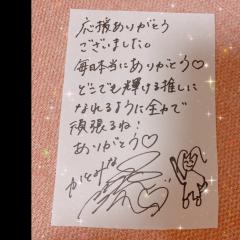 応援ありがとう
ございました。
毎日本当にありがとう♡
どこでも輝ける推しに
なれるように全力で
頑張るね!
ありがとう♡
かとみな